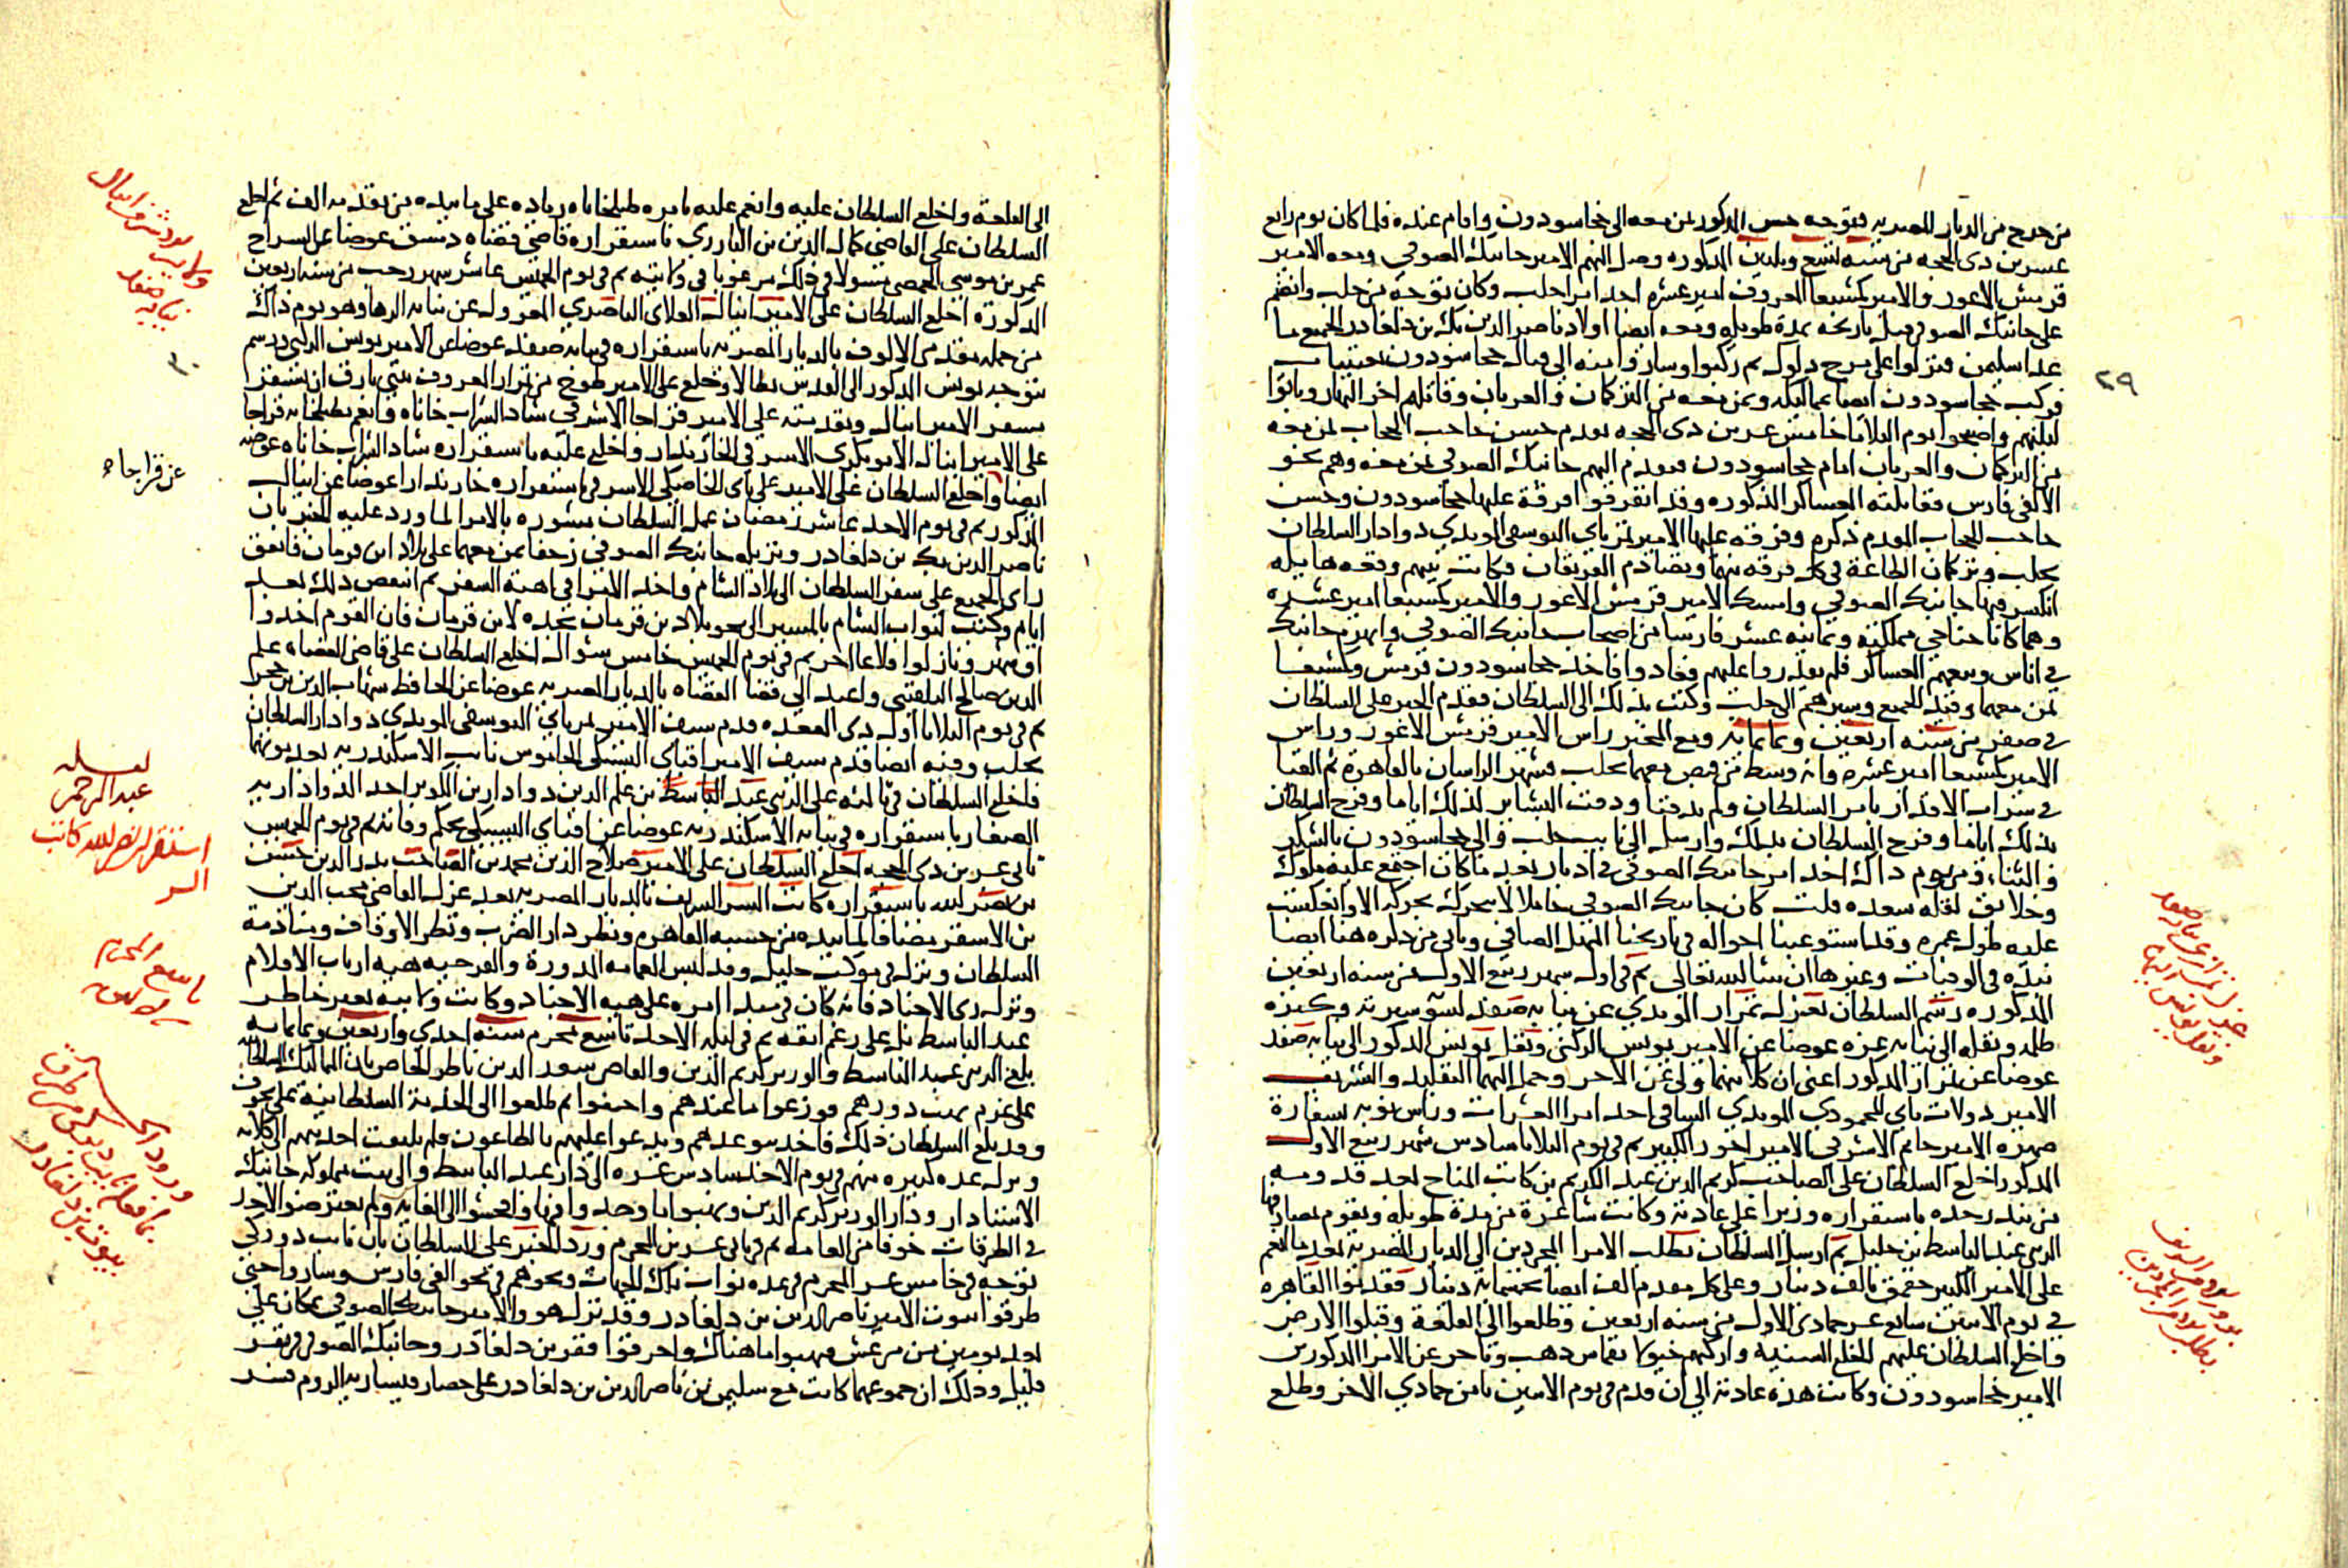 من خرج من الديار المصرية فتوجه حسن المذكور بمن معه الى خجاسودون واقام عنده فلما كان يوم رابع
عشرين ذى الحجه من سنه تسع وثلثين المذكوره وصل اليهم الامير جانبك الصوفي ومعه الامير
قرمش الاعور والامير كمشبغا المعروف امير عشره احد امرا حلب وكان توجه من حلب وانضم
على جانبك الصوفي قبل تاريخه بمدة طويله ومعه ايضا اولاد ناصر الدين بك بن دلغادر الجميع ما
عدا سليمن فنزلوا على مرج دلوك ثم ركبوا وساروا منه الى قتال خجاسودون بعينتاب
فركب خجاسودون ايضا بمماليكه وبمن معه من التركمان والعربان وقاتلهم اخر النهار وباتوا
ليلتهم واصبحوا يوم الثلاثا خامس عشرين ذى الحجه تقدم حسن حاجب الحجاب بمن معه
من التركمان والعربان امام خجاسودون فتقدم اليهم جانبك الصوفي بمن معه وهم نحو
الالفى فارس فقاتلته العساكر المذكوره وقد تفرقوا فرقتين فرقة عليها خجاسودون وحسن
حاجب الحجاب المقدم ذكره وفرقه عليها الامير تمرباي اليوسفى المويدي دوادار السلطان
بحلب وتركمان الطاعة في كل فرقه منهما وتصادم الفريقان فكانت بينهم وقعه هايله
انكسر فيها جانبك الصوفي وامسك الامير قرمش الاعور والامير كمشبغا امير عشره
وهما كانا جناحي مملكته وثمانيه عشر فارسا من اصحاب جانبك الصوفي وانهزم جانبك
في اناس وتبعهم العساكر فلم يقدروا عليهم فعادوا فاخذ خجاسودون قرمش وكمشبغا
بمن معهما وقيد الجميع وسيرهم الى حلب وكتب بذلك الى السلطان فقدم الخبر على السلطان
في صفر من سنه اربعين وثمانمايه ومع المخبر راس الامير قرمش الاعور وراس
الامير كمشبغا امير عشره وانه وسط من قبض معهما بحلب فشهر الراسان بالقاهرة ثم القيا
في سراب الاقذار بامر السلطان ولم يدفنا ودقت البشاير لذلك اياما وفرح السلطان
بذلك اياما وفرح السلطان بذلك وارسل الى نايب حلب والى خجاسودون بالشكر
والثناء ومن يوم ذاك اخذ امر جانبك الصوفي في ادبار بعد ما كان اجتمع عليه ملوك
وخلايق لقله سعده قلت كان جانبك الصوفي خاملا لا يتحرك بحركه الا وانعكست
عليه طول عمره وقد استوعبنا احواله في تاريخنا المنهل الصافي وياتى من ذكره هنا ايضا
نبذه في الوفيات وغيرها ان شا الله تعالى ثم في اول شهر ربيع الاول من سنه اربعين
المذكوره رسم السلطان بعزل تمراز المويدي عن نيابه صفد لسو سيرته وكثرة
ظلمه ونقله الى نيابه غزه عوضا عن الامير يونس الركنى ونقل يونس المذكور الى نيابه صفد
عوضا عن تمراز المذكور اعنى ان كلا منهما ولى عن الاخر وحمل اليهما التقليد والتشريف
الامير دولات باي المحمودي المويدي الساقى احد امرا العشرات وراس نوبه بسفارة
صهره الامير جانم الاشرفي الامير اخور الكبير ثم في يوم الثلاثا سادس شهر ربيع الاول
المذكور اخلع السلطان على الصاحب كريم الدين عبد الكريم بن كاتب المناخ لعد قدومه
من بندر جده باستقراره وزيرا على عادته وكانت شاغرة من مدة طويله ويقوم بمصارفها
الزينى عبد الباسط بن خليل ثم ارسل السلطان بطلب الامرا المجردين الى الديار المصرية بعد ما انعم
على الامير الكبير جقمق بالف دينار وعلى كل مقدم الف ايضا بخمسمائه دينار فقدموا القاهره
في يوم الاثنين سابع عشر جمادى الاول من سنه اربعين وطلعوا الى القلعة وقبلوا الارض
فاخلع السلطان عليهم الخلع السنيه واركبهم خيولا بقماش ذهب وتاخر عن الامرا المذكورين
الامير خجاسودون وكانت هذه عادته الى ان قدم في يوم الاثنين ثامن جمادي الاخر وطلع
٢٩
عزل تمراز عن نيابه صفد
ونقل يونس اليها
الى القلعة واخلع السلطان عليه وانعم عليه بامره طبلخاناه زياده على ما بيده من تقدمه الف ثم اخلع
السلطان على القاضى كمال الدين بن البارزي باستقراره قاضى قضاه دمشق عوضا عن السراج
عمر بن موسى الحمصى مسولا في ذلك مرغوبا في ولايته ثم في يوم الخميس عاشر شهر رجب من سنه اربعين
المذكورة اخلع السلطان على الامير اينال العلاى الناصري المعزول عن نيابه الرها وهو يوم ذاك
من جمله مقدمى الالوف بالديار المصريه باستقراره في نيابه صفد عوضا عن الامير يونس الركنى ورسم
بتوجه يونس المذكور الى القدس بطالا وخلع على الامير طوخ من تمراز المعروف ببنى بازق ان يتسفر
بسفر الامير اينال وتقدمته على الامير قراجا الاشرفى شاد الشراب خاناه وانعم بطبلخانه قراجا
على الامير اينال الابوبكرى الاشرفى الخازندار واخلع عليه باستقراره شاد الشراب خاناه عوضه
ايضا واخلع السلطان على الامير على باى الخاصكى الاشرفى باستقراره خازندارا عوضا عن اينال
المذكور ثم في يوم الاحد عاشر رمضان عمل السلطان مشوره بالامرا لما ورد عليه الخبر بان
ناصر الدين بك بن دلغادر ونزيله جانبك الصوفي زحفا بمن معهما على بلاد ابن قرمان فاتفق
راى الجميع على سفر السلطان الى بلاد الشام واخذ الامرا في اهبة السفر ثم انتقض ذلك بعد
ايام وكتب لنواب الشام بالمسير الى نحو بلاد بن قرمان نجده لابن قرمان فان القوم اخذوا
اق شهر ونازلوا قلاعا اخر ثم في يوم الخميس خامس شوال اخلع السلطان على قاضى القضاه علم
الدين صالح البلقينى واعيد الى قضا القضاه بالديار المصريه عوضا عن الحافظ شهاب الدين بن حجر
ثم في يوم الثلاثا اول ذى القعده قدم سيف الامير تمرباي اليوسفى المويدى دوادار السلطان
بحلب وفيه ايضا قدم سيف الامير اقباي اليشبكى الجاموس نايب الاسكندريه بعد موتهما
فاخلع السلطان في ثالثه على الزينى عبد الباسط بن علم الدين دوادار بن الكويز احد الدواداريه
الصغار باستقراره في نيابه الاسكندريه عوضا عن اقباي اليشبكى بحكم وفاته ثم في يوم الخميس
ثانى عشرين ذى الحجه اخلع السلطان على الامير صلاح الدين محمد بن الصاحب بدر الدين حسن
بن نصر الله باستقراره كاتب السر الشريف بالديار المصريه بعد عزل القاضى محب الدين
بن الاشقر مضافا لما بيده من حسبه القاهره ونظر دار الضرب ونظر الاوقاف ومنادمة
السلطان ونزل في موكب جليل وقد لبس العمامه المدورة والفرجيه هيه ارباب الاقلام
وترك زى الاجناد فانه كان في مبدا امره على هيه الاجناد وكانت ولايته بغير خاطر
عبد الباسط بل على رغم انفه ثم في ليله الاحد تاسع محرم سنه احدى واربعين وثمانمايه
بلغ الزينى عبد الباسط والوزير كريم الدين والقاضى سعد الدين ناظر الخاص بان المماليك السلطانيه
على عزم نهب دورهم فوزعوا ما عندهم واختفوا ثم طلعوا الى الخدمة السلطانية على تخوف
وقد بلغ السلطان ذلك فاخذ يتوعدهم ويدعو عليهم بالطاعون فلم يلتفت احد منهم الى كلامه
ونزل عده كبيره منهم في يوم الاحد سادس عشره الى دار عبد الباسط والى بيت مملوكه جانبك
الاستادار ودار الوزير كريم الدين ونهبوا ما وجدوا فيها وافحشوا الى الغايه ولم يعترضوا لاحد
في الطرقات خوفا من العامه ثم في ثانى عشرين المحرم ورد الخبر على السلطان بان نايب دوركى
توجه في خامس عشر المحرم في عده نواب تلك الجهات وغيرهم في نحو الفى فارس وساروا حتى
طرقوا بيوت الامير ناصر الدين بن دلغادر وقد نزل هو والامير جانبك الصوفي بمكان على
بعد يومين من مرعش فنهبوا ما هناك واحرقوا ففر بن دلغادر وجانبك الصوفي في نفر
قليل وذلك ان جموعهما كانت مع سليمن بن ناصر الدين بن دلغادر على حصار قيساريه الروم فسر
نيابه صفد
٣٠
عن قراجاء
عبد الرحمن
استقرار نصر الله كاتب
السر
تاسع المحرم
بيوت بن دلغادر